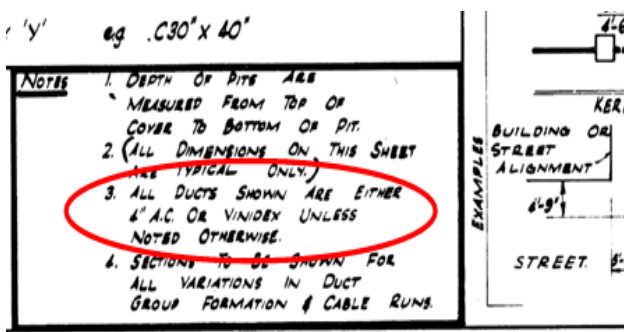 'Y' eg .C30" x 40"
NOTES
1. DEPTH OF PITS ARE
MEASURED FROM TOP OF
COVER TO BOTTOM OF PIT.
2. (ALL DIMENSIONS ON THIS SHEET
ARE TYPICAL ONLY.)
3. ALL DUCTS SHOWN ARE EITHER
4" A.C. OR VINIDEX UNLESS
NOTED OTHERWISE.
4. SECTIONS TO BE SHOWN FOR
ALL VARIATIONS IN DUCT
GROUP FORMATION & CABLE RUNS.
EXAMPLES
4'-6
KER
BUILDING OR
STREET
ALIGNMENT
4'-9"
STREET.